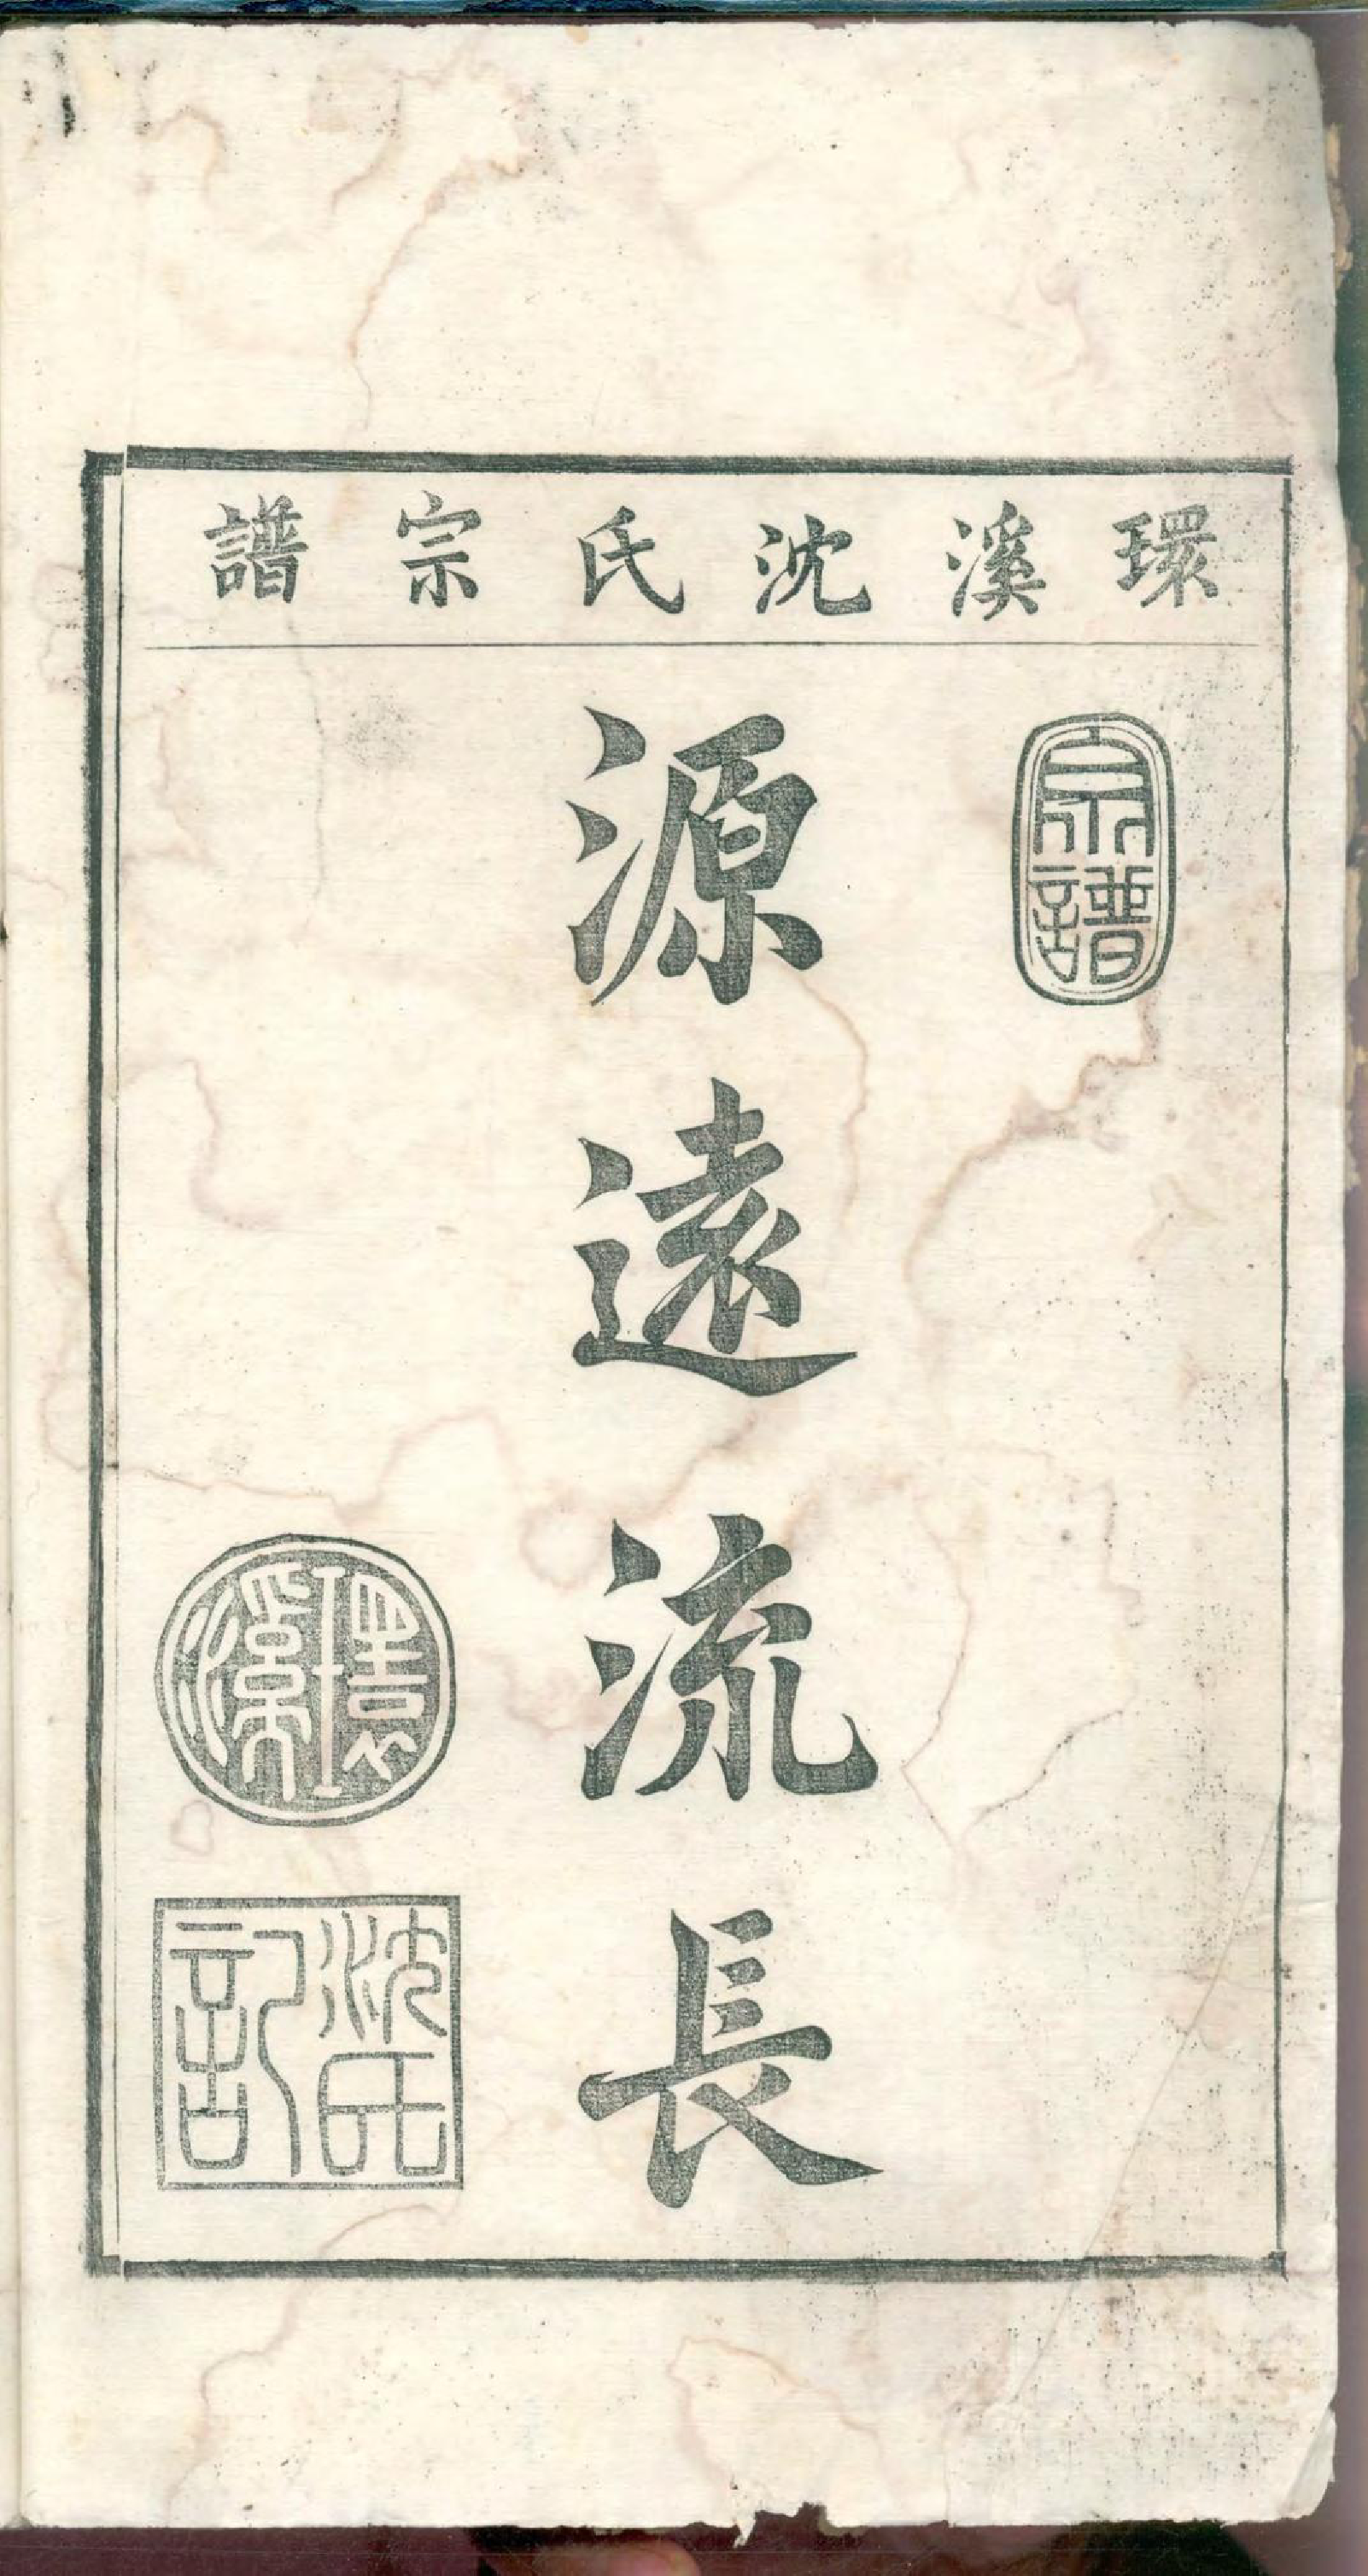 環溪沈氏宗譜
宗譜
源遠流長
環溪
沈氏
記言